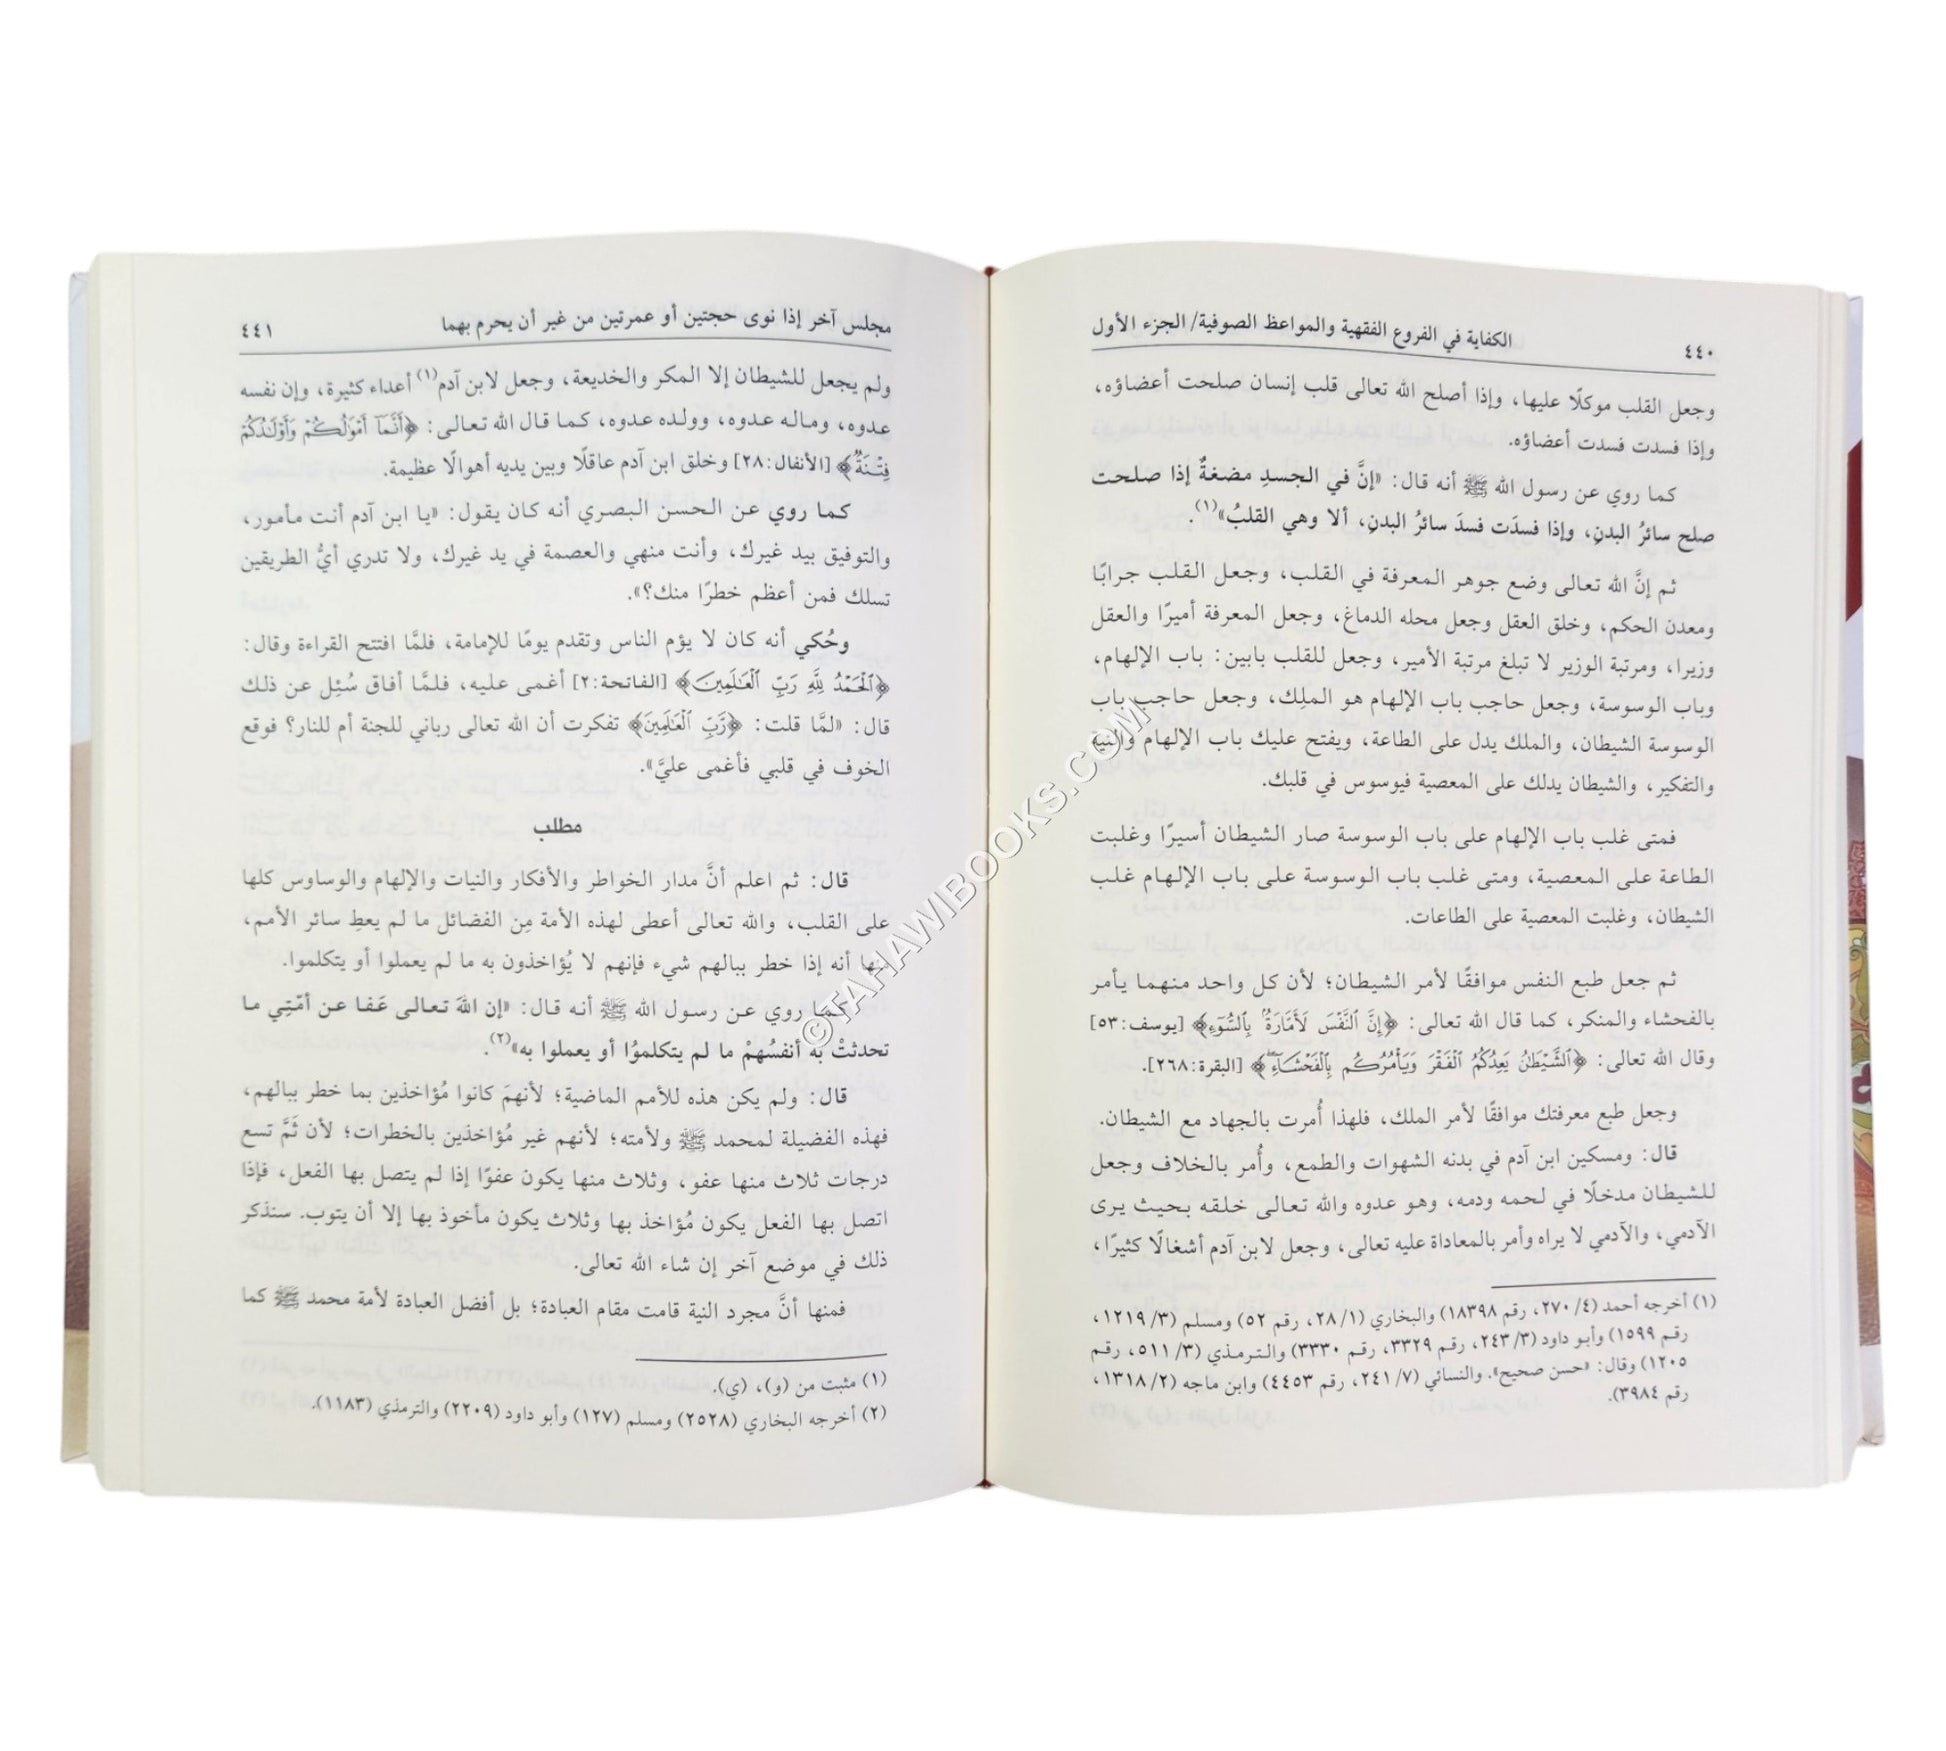 ٤٤٠
الكفاية في الفروع الفقهية والمواعظ الصوفية/ الجزء الأول
وجعل القلب موكلًا عليها، وإذا أصلح الله تعالى قلب إنسان صلحت أعضاؤه،
وإذا فسدت فسدت أعضاؤه.
كما روي عن رسول الله ﷺ أنه قال: «إنَّ في الجسدِ مضغةٌ إذا صلحت
صلح سائرُ البدنِ، وإذا فسدَت فسدَ سائرُ البدنِ، ألا وهي القلبُ»(١).
ثم إنَّ الله تعالى وضع جوهر المعرفة في القلب، وجعل القلب جرابًا
ومعدن الحكم، وخلق العقل وجعل محله الدماغ، وجعل المعرفة أميرًا والعقل
وزيرا، ومرتبة الوزير لا تبلغ مرتبة الأمير، وجعل للقلب بابين: باب الإلهام،
وباب الوسوسة، وجعل حاجب باب الإلهام هو الملِك، وجعل حاجب باب
الوسوسة الشيطان، والملك يدل على الطاعة، ويفتح عليك باب الإلهام والنية
والتفكير، والشيطان يدلك على المعصية فيوسوس في قلبك.
فمتى غلب باب الإلهام على باب الوسوسة صار الشيطان أسيرًا وغلبت
الطاعة على المعصية، ومتى غلب باب الوسوسة على باب الإلهام غلب
الشيطان، وغلبت المعصية على الطاعات.
ثم جعل طبع النفس موافقًا لأمر الشيطان؛ لأن كل واحد منهما يأمر
بالفحشاء والمنكر، كما قال الله تعالى: ﴿إِنَّ ٱلنَّفْسَ لَأَمَّارَةُۢ بِٱلسُّوٓءِ﴾ [يوسف:٥٣]
وقال الله تعالى: ﴿ٱلشَّيْطَٰنُ يَعِدُكُمُ ٱلْفَقْرَ وَيَأْمُرُكُم بِٱلْفَحْشَآءِۖ﴾ [البقرة:٢٦٨].
وجعل طبع معرفتك موافقًا لأمر الملك، فلهذا أُمرت بالجهاد مع الشيطان.
قال: ومسكين ابن آدم في بدنه الشهوات والطمع، وأُمر بالخلاف وجعل
للشيطان مدخلًا في لحمه ودمه، وهو عدوه والله تعالى خلقه بحيث يرى
الآدمي، والآدمي لا يراه وأمر بالمعاداة عليه تعالى، وجعل لابن آدم أشغالًا كثيرًا،
(١) أخرجه أحمد (٢٧٠/٤، رقم ١٨٣٩٨) والبخاري (٢٨/١، رقم ٥٢) ومسلم (١٢١٩/٣،
رقم ١٥٩٩) وأبو داود (٢٤٣/٣، رقم ٣٣٢٩، رقم ٣٣٣٠) والترمذي (٥١١/٣، رقم
١٢٠٥) وقال: «حسن صحيح». والنسائي (٢٤١/٧، رقم ٤٤٥٣) وابن ماجه (١٣١٨/٢،
رقم ٣٩٨٤).
مجلس آخر إذا نوى حجتين أو عمرتين من غير أن يحرم بهما
٤٤١
ولم يجعل للشيطان إلا المكر والخديعة، وجعل لابن آدم(١) أعداء كثيرة، وإن نفسه
عدوه، وماله عدوه، وولده عدوه، كما قال الله تعالى: ﴿أَنَّمَآ أَمْوَٰلُكُمْ وَأَوْلَٰدُكُمْ
فِتْنَةٌ﴾ [الأنفال:٢٨] وخلق ابن آدم عاقلًا وبين يديه أهوالًا عظيمة.
كما روي عن الحسن البصري أنه كان يقول: «يا ابن آدم أنت مأمور،
والتوفيق بيد غيرك، وأنت منهي والعصمة في يد غيرك، ولا تدري أيُّ الطريقين
تسلك فمن أعظم خطرًا منك؟».
وحُكي أنه كان لا يؤم الناس وتقدم يومًا للإمامة، فلمَّا افتتح القراءة وقال:
﴿ٱلْحَمْدُ لِلَّهِ رَبِّ ٱلْعَٰلَمِينَ﴾ [الفاتحة:٢] أغمى عليه، فلمَّا أفاق سُئِل عن ذلك
قال: «لمَّا قلت: ﴿رَبِّ ٱلْعَٰلَمِينَ﴾ تفكرت أن الله تعالى رباني للجنة أم للنار؟ فوقع
الخوف في قلبي فأغمى عليَّ».
مطلب
قال: ثم اعلم أنَّ مدار الخواطر والأفكار والنيات والإلهام والوساوس كلها
على القلب، والله تعالى أعطى لهذه الأمة مِن الفضائل ما لم يعطِ سائر الأمم،
منها أنه إذا خطر ببالهم شيء فإنهم لا يُؤاخذون به ما لم يعملوا أو يتكلموا.
كما روي عن رسول الله ﷺ أنه قال: «إن اللهَ تعالى عَفا عن أمّتِي ما
تحدثتْ به أنفسُهمْ ما لم يتكلموُا أو يعملوا به»(٢).
قال: ولم يكن هذه للأمم الماضية؛ لأنهمَ كانوا مُؤاخذين بما خطر ببالهم،
فهذه الفضيلة لمحمد ﷺ ولأمته؛ لأنهم غير مُؤاخذين بالخطرات؛ لأن ثَمَّ تسع
درجات ثلاث منها عفو، وثلاث منها يكون عفوًا إذا لم يتصل بها الفعل، فإذا
اتصل بها الفعل يكون مُؤاخذ بها وثلاث يكون مأخوذ بها إلا أن يتوب. سنذكر
ذلك في موضع آخر إن شاء الله تعالى.
فمنها أنَّ مجرد النية قامت مقام العبادة؛ بل أفضل العبادة لأمة محمد ﷺ كما
(١) مثبت من (و)، (ي).
(٢) أخرجه البخاري (٢٥٢٨) ومسلم (١٢٧) وأبو داود (٢٢٠٩) والترمذي (١١٨٣).
©TAHAWIBOOKS.COM